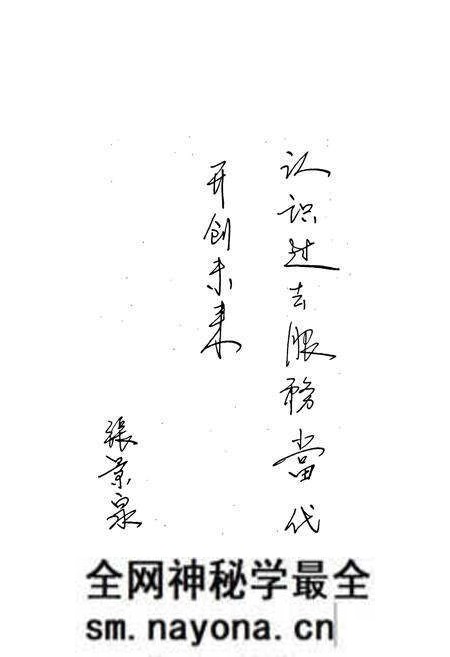 认识过去服務當代
开创未来
張景泉
全网神秘学最全
sm.nayona.cn